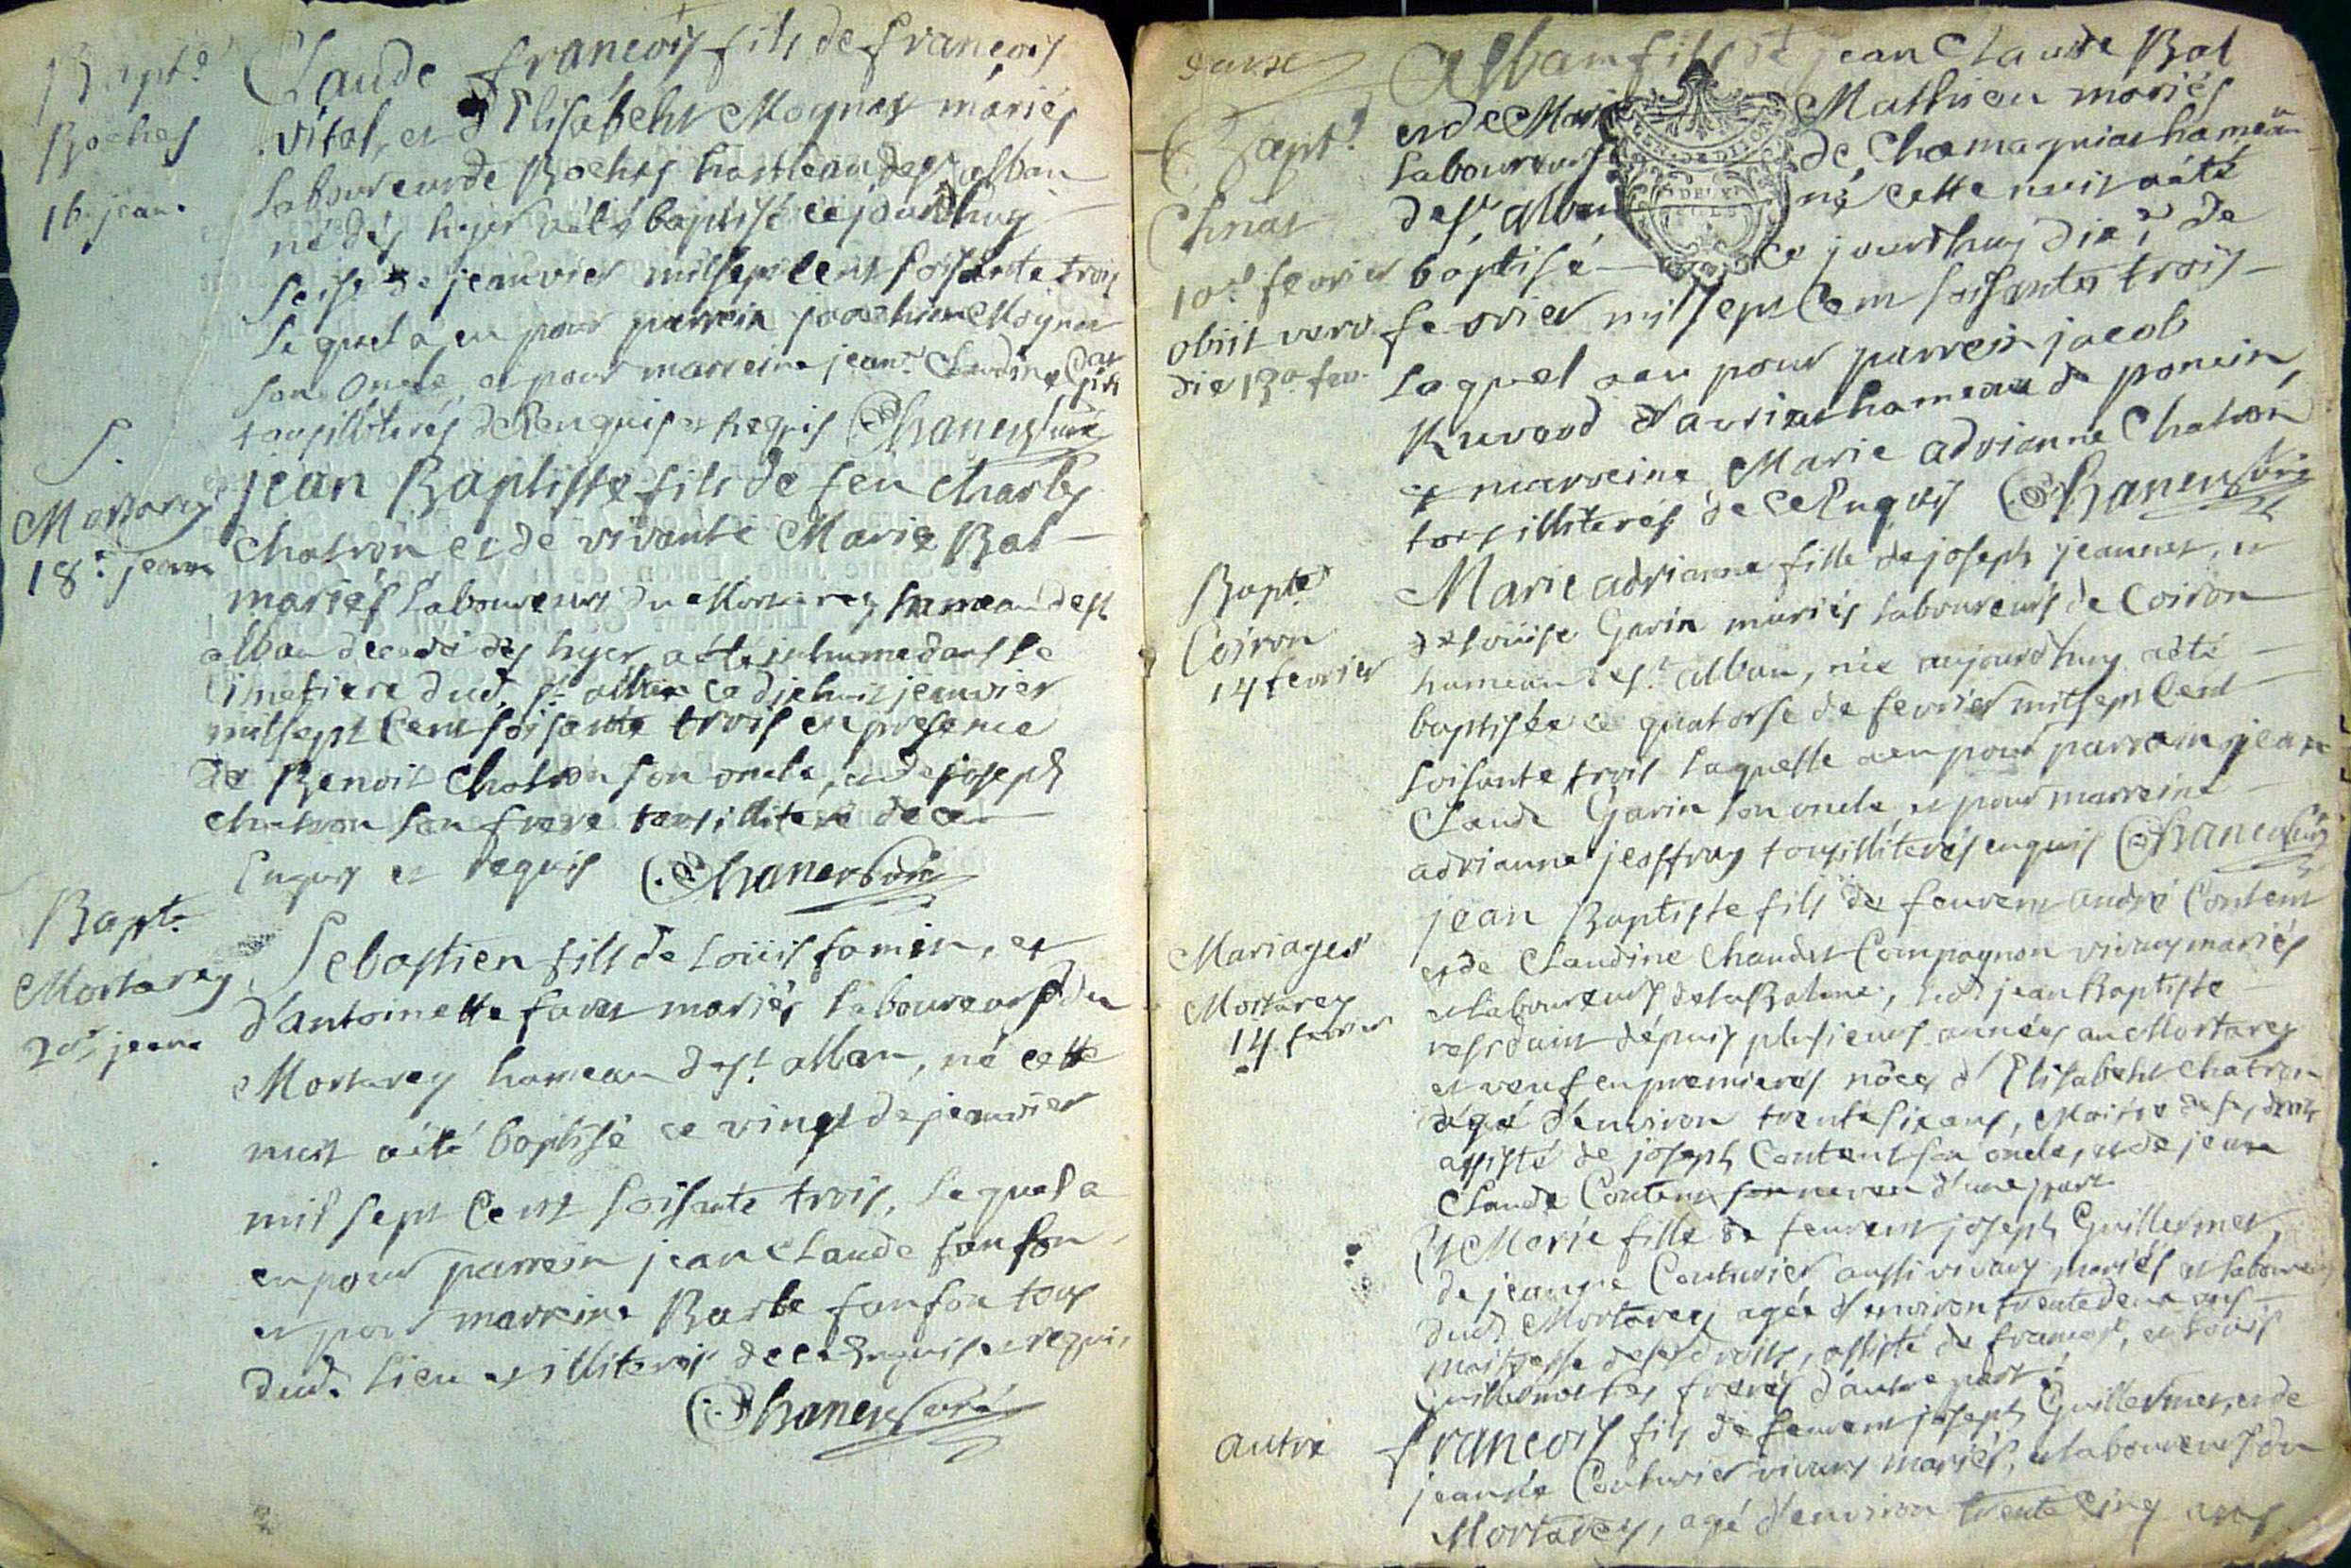 Bapt.e
Roches
16. jeanv.
Claude françois fils de françois
vital, et d'Elisabeht Moynat mariés
laboureur de Roches hameau de st alban
né dès hyer a été baptisé ce jourdhuy
seise de jeanvier mil sept cent soisante trois
le quel a eu pour parrein joachim Moynat
son oncle, et pour marreine jean.e Claudine
tous illiterés de ce enquis et requis Chanen curé
S.
Mortarey
18.e jeanv
jean Baptiste fils de feu charles
chatron et de vivante Marie Bal
mariés laboureurs du Mortarey hameau de st
alban decedé dès hyer, a été inhumé dans le
cimetiere dud. st. alban ce dix huit jeanvier
mil sept cent soisante trois en presence
de Benoit Chatron son oncle, et de joseph
chatron son frere tous illiteré de ce
Enquis et requis Chanen curé
Bapt.e
Mortarey
20.e jeanv
Sebastien fils de Loüis famin, et
d'antoinette favet mariés laboureurs du
Mortarey hameau de st. alban, né cette
nuit a été baptisé ce vingt de jeanvier
mil sept cent soisante trois, le quel a
eu pour parrein jean Claude fanfon
et pour marreine Barbe fanfon tous
dud. lieu et illiterés de ce Enquis et requis
Chanen curé
Bapt.e
Chnat
10.e fevrier
obiit vero
die 13.a fev.
Alban fils de jean Claude Bal
et de Marie Mathieu mariés
laboureurs de Chamagniat hameau
de st. alban né cette nuit a été
baptisé ce jourdhuy dix.e de
fevrier mil sept cent soisante trois
le quel a eu pour parrein jacob
Ruvard d'avriat hameau de poncin,
et marreine Marie adrianne Chatron
tous illiterés de ce Enquis Chanen curé
Bapt.e
Coiron
14 fevrier
Marie adrianne fille de joseph jeannet, et
de Loüise Garin mariés laboureurs de Coiron
hameau de st. alban, née aujourdhuy a été
baptisée ce quatorse de fevrier mil sept cent
soisante trois laquelle a eu pour parrain jean
Claude Garin son oncle, et pour marreine
adrianne jeoffray tous illiterés enquis Chanen curé
Mariages
Mortarey
14. fevrier
jean Baptiste fils de feurent andré Content
et de Claudine Chaudet Compagnon vivans mariés
et laboureurs de la Balme, led. jean Baptiste
residant dépuis plusieurs années au Mortarey
et veuf en premieres nôces d'Elisabeht chatron
agé d'environ trente six ans, Maitre de ses droits
assisté de joseph Content son oncle, et de jean
Claude Content son neveu d'une part
Et Marie fille de feurent joseph Guillermet,
de jeanne Couturier aussi vivans mariés et laboureurs
dud. Mortarey agée d'environ trente deux ans
maitresse de ses droits, assisté de françois, et Loüis
Guillermet ses freres d'autre part.
autre
françois fils de feurent joseph Guillermet, et de
jeanne Couturier vivans mariés, et laboureurs du
Mortarey, agé d'environ trente cinq ans